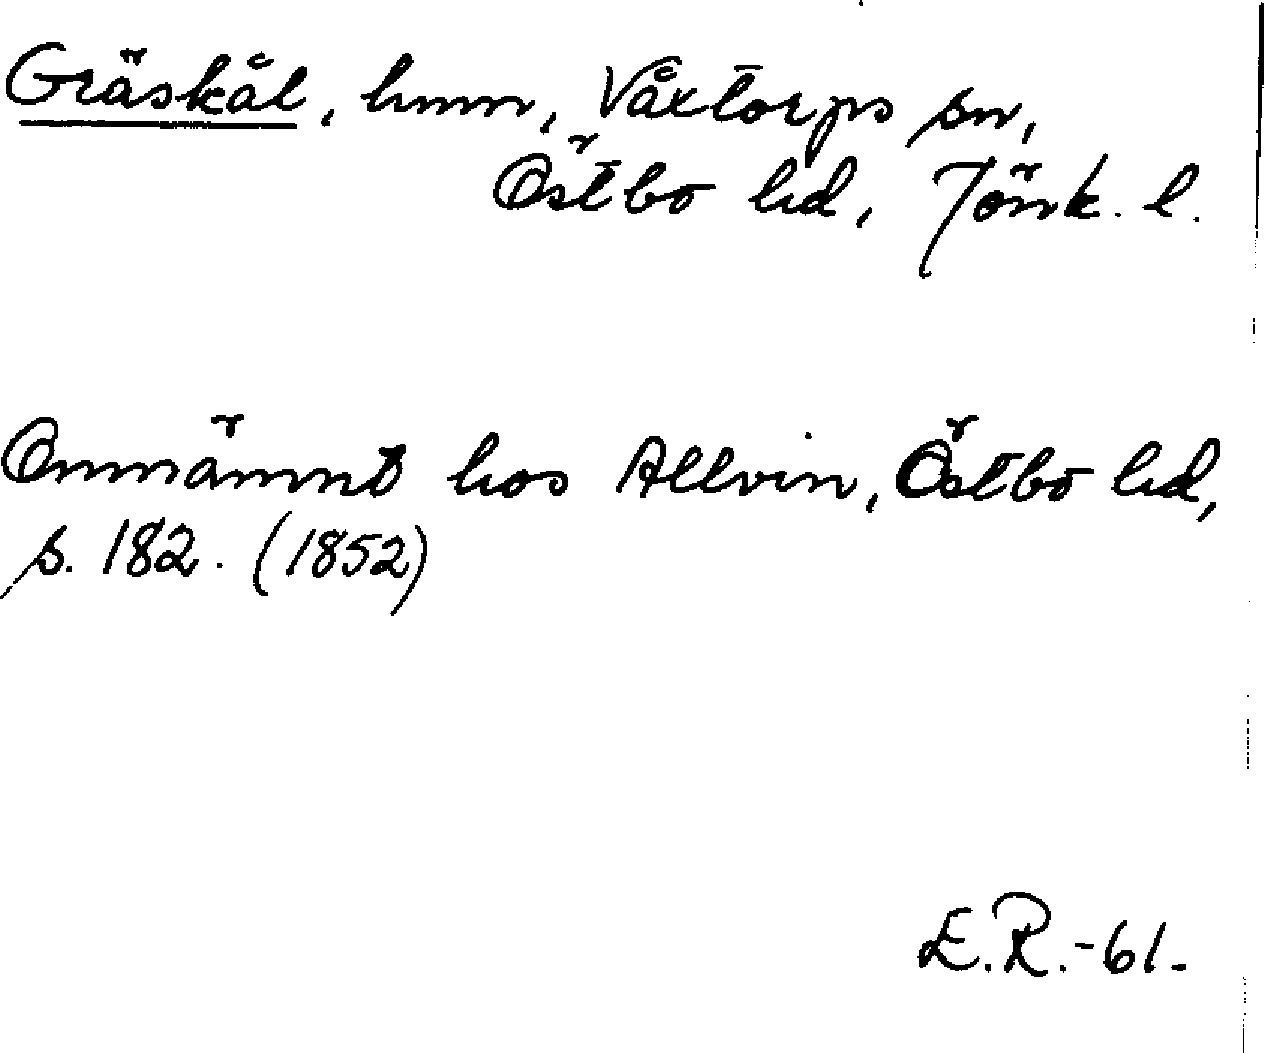 Gräskål, hmn, Våxtorps sn,
Östbo hd, Jönk. l.
Omnämnt hos Allvin, Östbo hd,
s. 182. (1852)
E.R.-61.